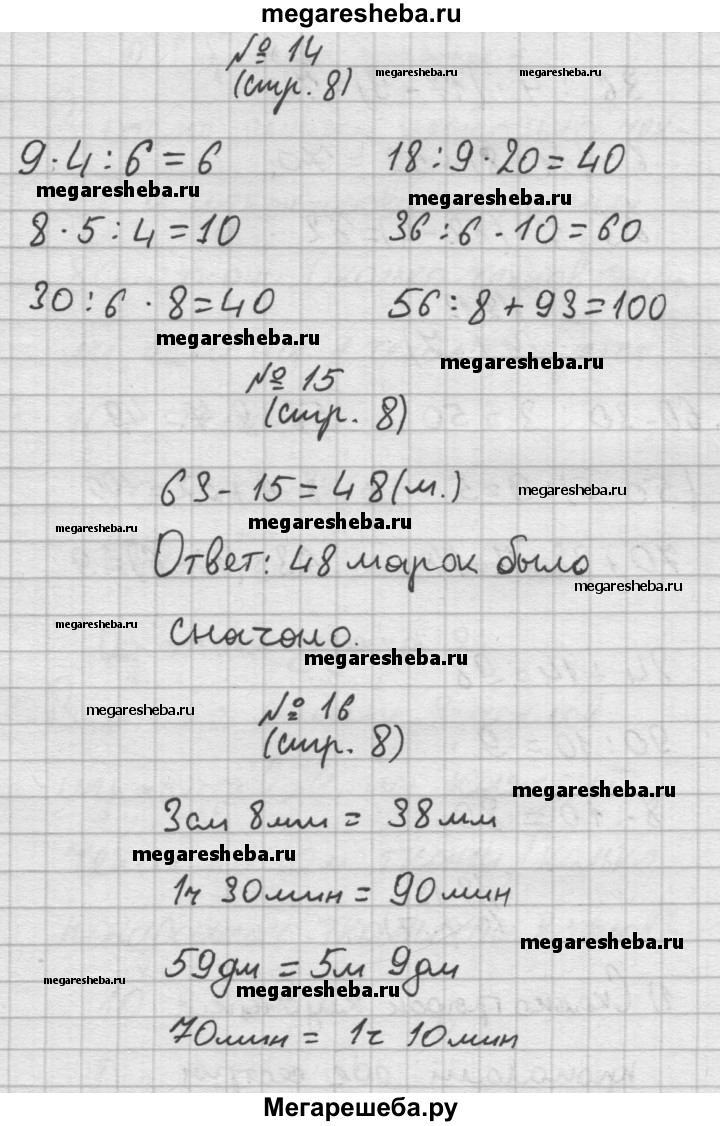 megaresheba.ru
№ 14
(стр. 8)
megaresheba.ru megaresheba.ru
9·4:6=6 18:9·20=40
megaresheba.ru megaresheba.ru
8·5:4=10 36:6·10=60
30:6·8=40 56:8+93=100
megaresheba.ru megaresheba.ru
№ 15
(стр. 8)
63-15=48(м.) megaresheba.ru
megaresheba.ru megaresheba.ru
Ответ: 48 марок было
megaresheba.ru
megaresheba.ru сначало.
megaresheba.ru
megaresheba.ru № 16
(стр. 8)
megaresheba.ru
3см 8мм = 38мм
megaresheba.ru
1ч 30мин = 90мин
megaresheba.ru
59дм = 5м 9дм
megaresheba.ru megaresheba.ru
70мин = 1ч 10мин
Мегарешеба.ру